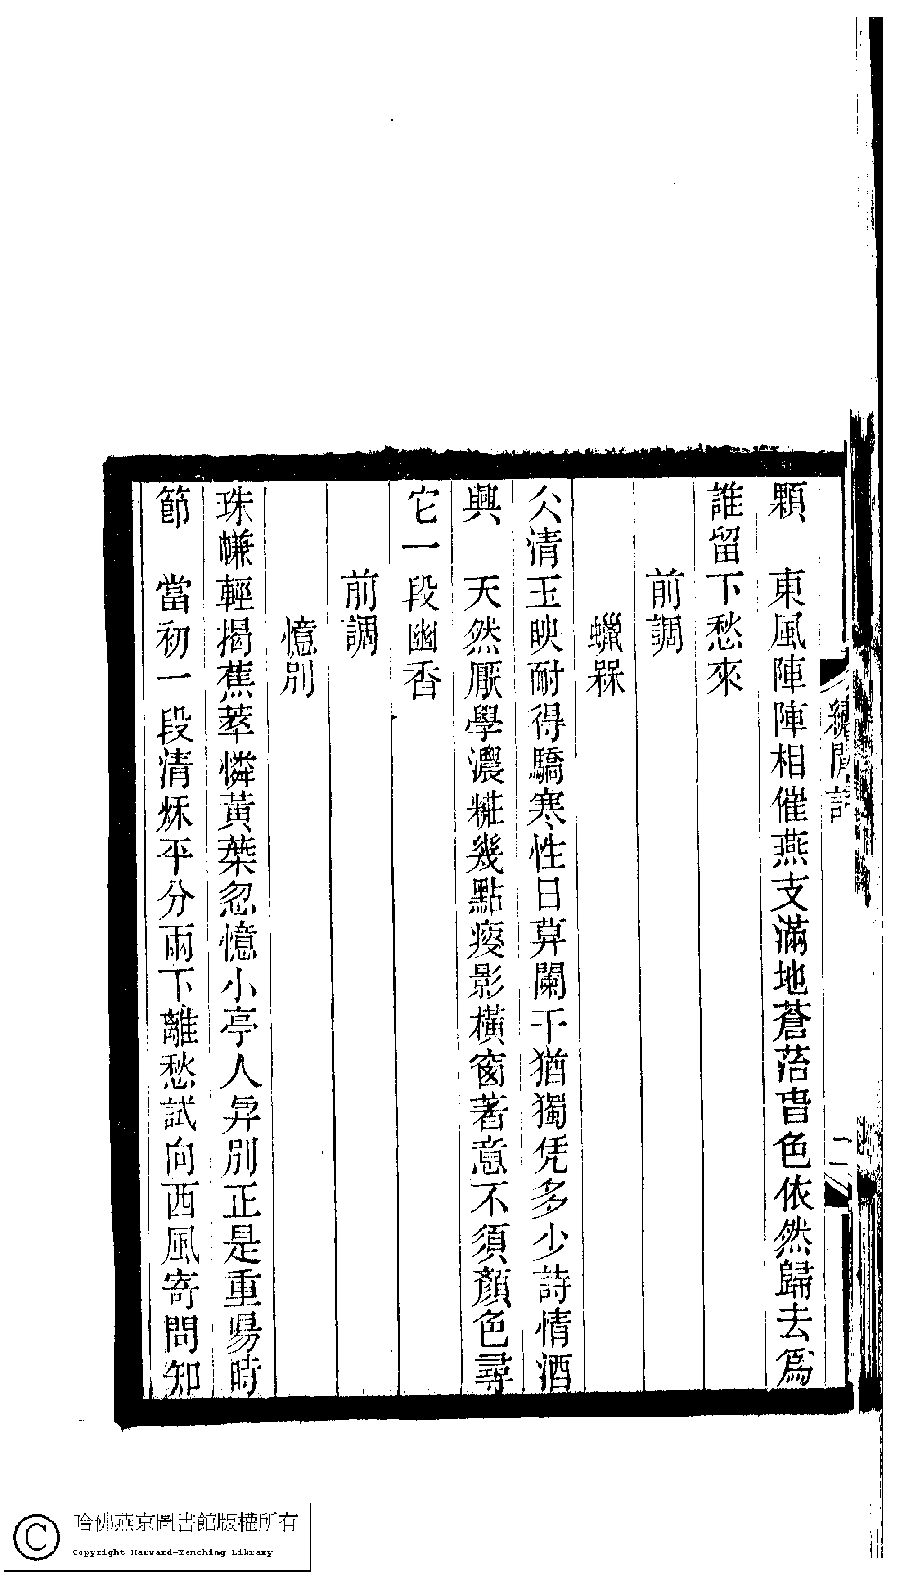 顆　東風陣陣相催燕支滿地蒼苔旾色依然歸去爲
誰留下愁來
前調
蠟槑
仌清玉映耐得驕寒性日莫闌干猶獨凭多少詩情酒
興　天然厭學濃糚幾點瘦影橫窗著意不須顏色尋
它一段幽香
前調
憶別
珠㡘輕揭蕉萃憐黃葉忽憶小亭人別正是重陽時
節　當初一段清秌平分兩下離愁試向西風寄問知
二
哈佛燕京圖書館版權所有
Copyright Harvard-Yenching Library